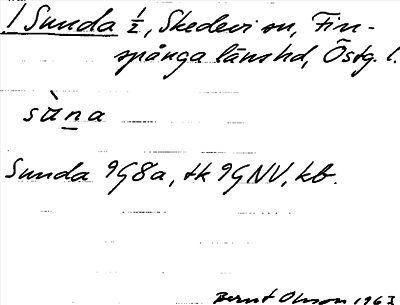 ! Sunda ½, Skedevi sn, Fin-
spånga länshd, Östg. l.
sùn̲a
Sunda 9G8a, tk 9GNV, kb.
Bernt Olsson 1962